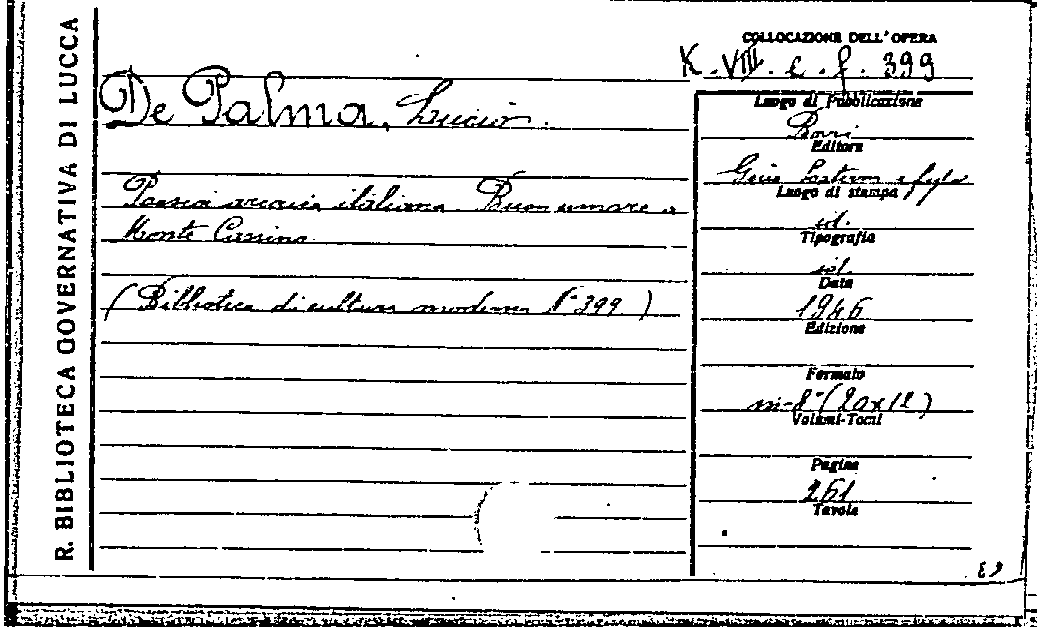 R. BIBLIOTECA GOVERNATIVA DI LUCCA
COLLOCAZIONE DELL'OPERA
K. VIII. e. f. 399
De Palma, Lucio.
Poesia arcaica italiana Buon umore a
Monte Cassino
(Biblioteca di cultura moderna N° 399)
Luogo di Pubblicazione
Bari
Editore
Gius Laterza e figli
Luogo di stampa
id.
Tipografia
id.
Data
1946
Edizione
Formato
in-8° (20x12)
Volumi-Tomi
Pagine
261
Tavole